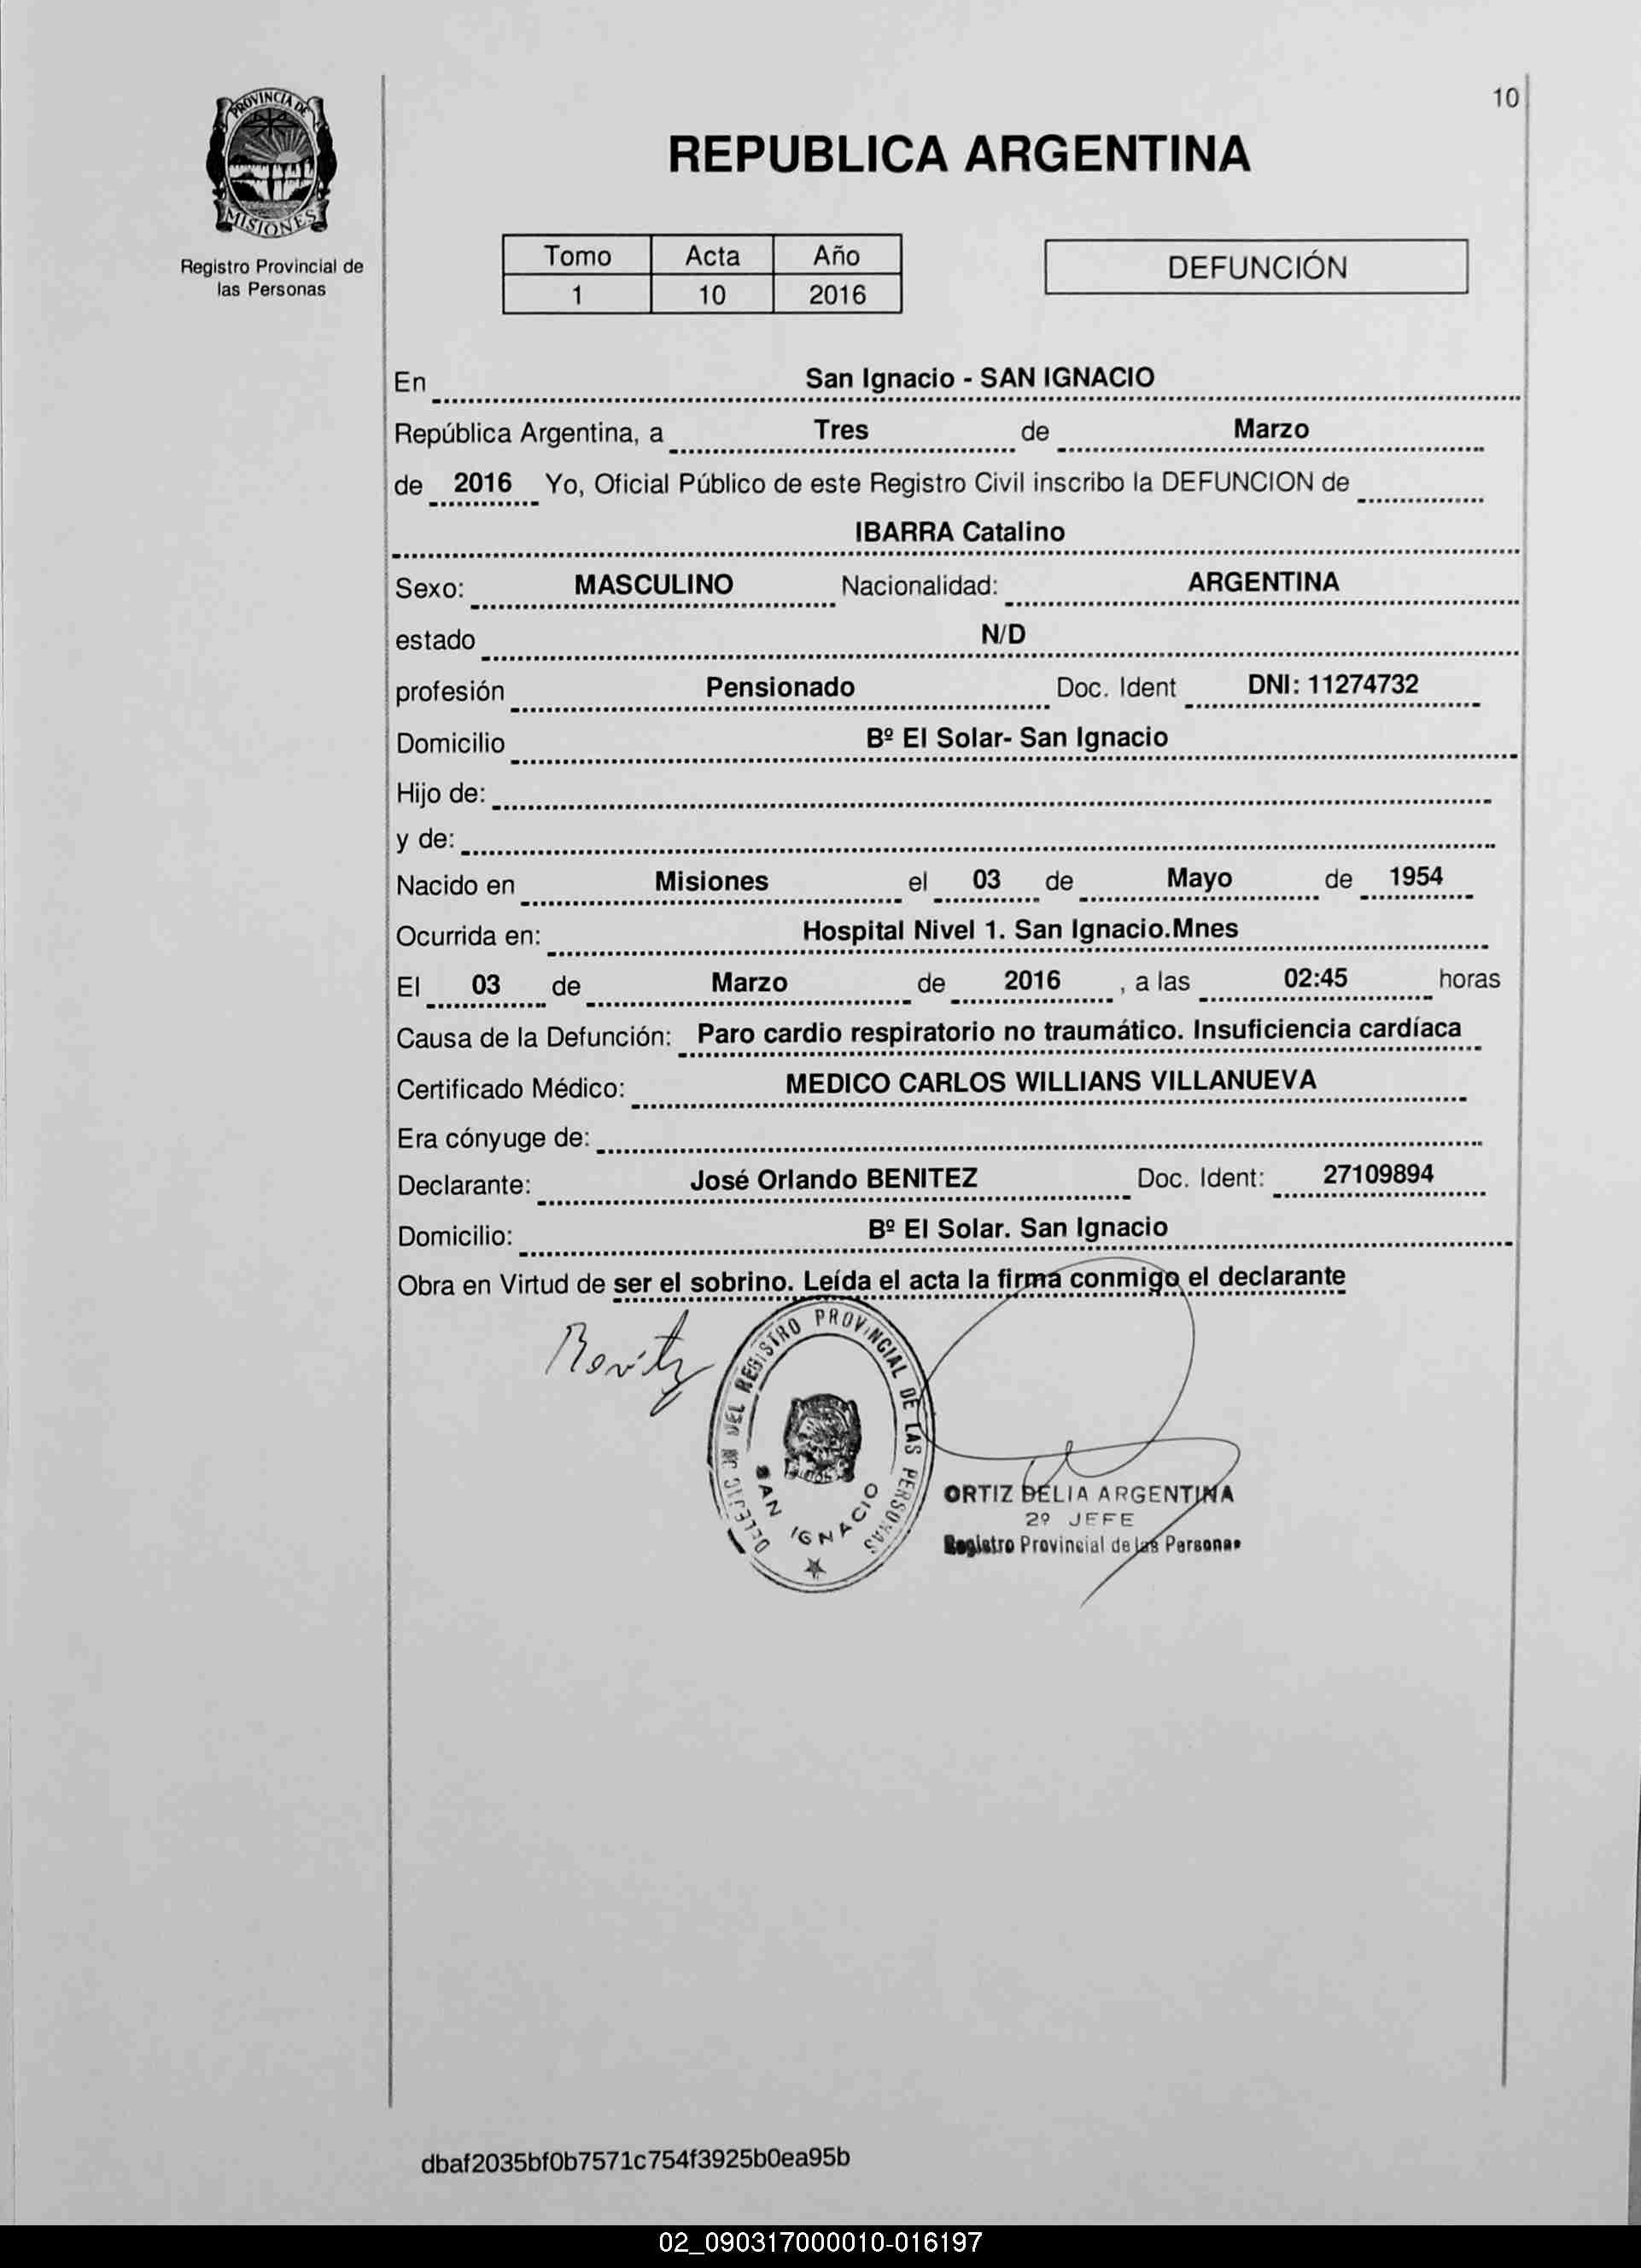 10
PROVINCIA DE
MISIONES
Registro Provincial de
las Personas
REPUBLICA ARGENTINA
Tomo Acta Año
1 10 2016
DEFUNCIÓN
En San Ignacio - SAN IGNACIO
República Argentina, a Tres de Marzo
de 2016 Yo, Oficial Público de este Registro Civil inscribo la DEFUNCION de
IBARRA Catalino
Sexo: MASCULINO Nacionalidad: ARGENTINA
estado N/D
profesión Pensionado Doc. Ident DNI: 11274732
Domicilio Bº El Solar- San Ignacio
Hijo de:
y de:
Nacido en Misiones el 03 de Mayo de 1954
Ocurrida en: Hospital Nivel 1. San Ignacio.Mnes
El 03 de Marzo de 2016 , a las 02:45 horas
Causa de la Defunción: Paro cardio respiratorio no traumático. Insuficiencia cardíaca
Certificado Médico: MEDICO CARLOS WILLIANS VILLANUEVA
Era cónyuge de:
Declarante: José Orlando BENITEZ Doc. Ident: 27109894
Domicilio: Bº El Solar. San Ignacio
Obra en Virtud de ser el sobrino. Leída el acta la firma conmigo el declarante
DEL REGISTRO PROVINCIAL DE LAS PERSONAS
SAN IGNACIO
ORTIZ DELIA ARGENTINA
2º JEFE
Registro Provincial de las Personas
dbaf2035bf0b7571c754f3925b0ea95b
02_090317000010-016197